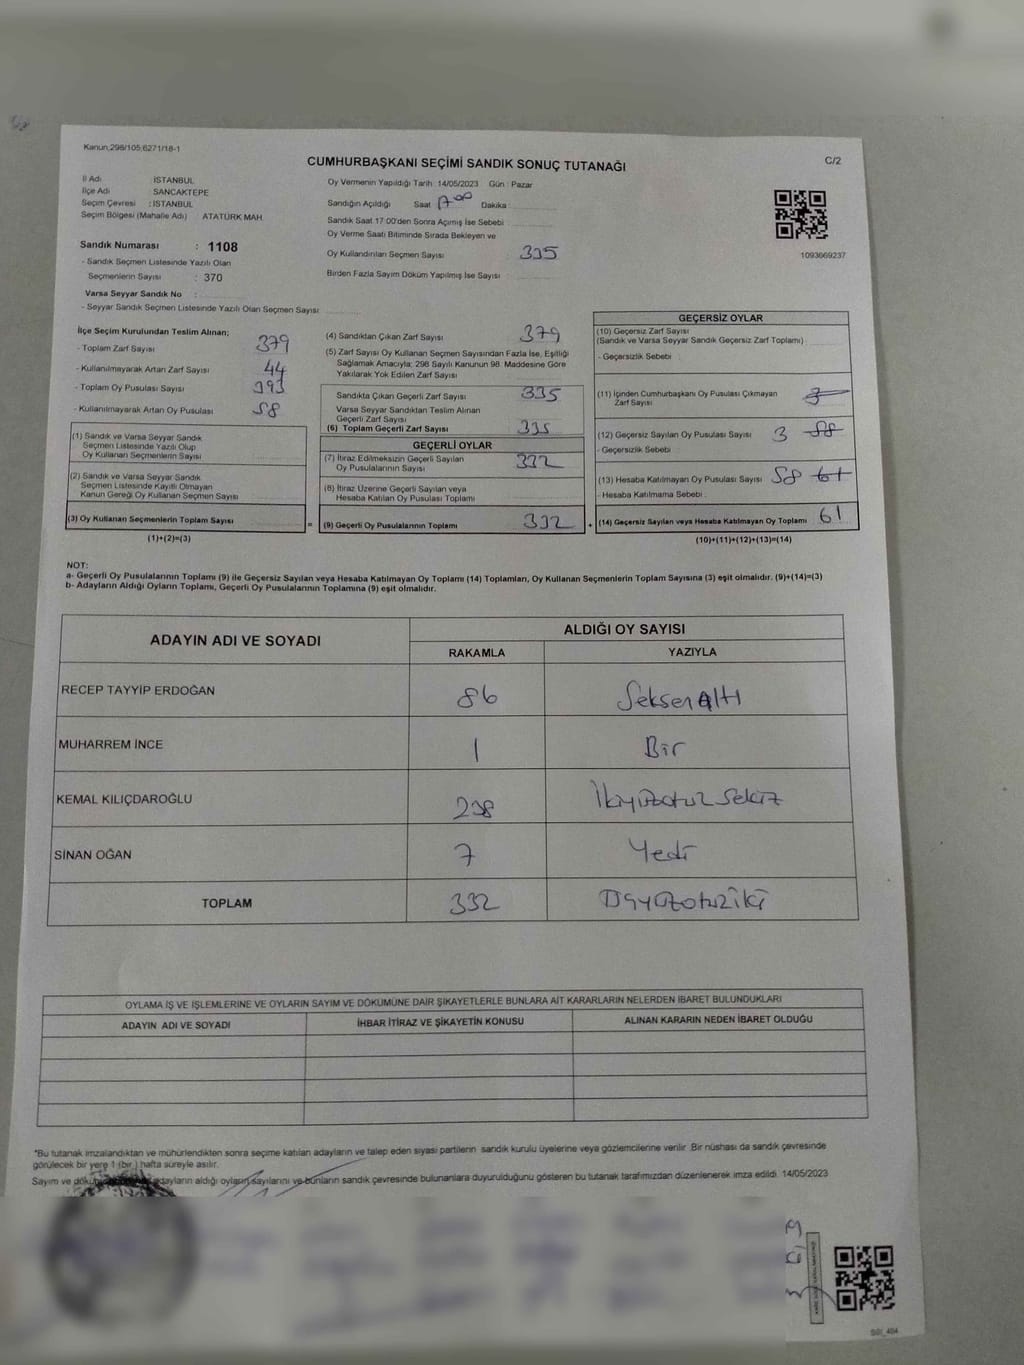 Kanun,298/105,6271/18-1
C/2
CUMHURBAŞKANI SEÇİMİ SANDIK SONUÇ TUTANAĞI
İl Adı : İSTANBUL
İlçe Adı : SANCAKTEPE
Seçim Çevresi : İSTANBUL
Seçim Bölgesi (Mahalle Adı) : ATATÜRK MAH.
Sandık Numarası : 1108
- Sandık Seçmen Listesinde Yazılı Olan
Seçmenlerin Sayısı : 370
Varsa Seyyar Sandık No :
- Seyyar Sandık Seçmen Listesinde Yazılı Olan Seçmen Sayısı :
Oy Vermenin Yapıldığı Tarih : 14/05/2023 Gün : Pazar
Sandığın Açıldığı Saat : 17:00 Dakika :
Sandık Saat 17:00'den Sonra Açımış İse Sebebi :
Oy Verme Saati Bitiminde Sırada Bekleyen ve
Oy Kullandırılan Seçmen Sayısı : 335
Birden Fazla Sayım Döküm Yapılmış İse Sayısı :
1093669237
İlçe Seçim Kurulundan Teslim Alınan;
- Toplam Zarf Sayısı : 379
- Kullanılmayarak Artan Zarf Sayısı : 44
- Toplam Oy Pusulası Sayısı : 393
- Kullanılmayarak Artan Oy Pusulası : 58
(1) Sandık ve Varsa Seyyar Sandık
Seçmen Listesinde Yazılı Olup
Oy Kullanan Seçmenlerin Sayısı :
(2) Sandık ve Varsa Seyyar Sandık
Seçmen Listesinde Kayıtlı Olmayan
Kanun Gereği Oy Kullanan Seçmen Sayısı :
(3) Oy Kullanan Seçmenlerin Toplam Sayısı :
(1)+(2)=(3)
(4) Sandıktan Çıkan Zarf Sayısı : 379
(5) Zarf Sayısı Oy Kullanan Seçmen Sayısından Fazla İse, Eşitliği
Sağlamak Amacıyla; 298 Sayılı Kanunun 98. Maddesine Göre
Yakılarak Yok Edilen Zarf Sayısı :
Sandıkta Çıkan Geçerli Zarf Sayısı : 335
Varsa Seyyar Sandıktan Teslim Alınan
Geçerli Zarf Sayısı :
(6) Toplam Geçerli Zarf Sayısı : 335
GEÇERLİ OYLAR
(7) İtiraz Edilmeksizin Geçerli Sayılan
Oy Pusulalarının Sayısı : 332
(8) İtiraz Üzerine Geçerli Sayılan veya
Hesaba Katılan Oy Pusulası Toplamı :
= (9) Geçerli Oy Pusulalarının Toplamı : 332
GEÇERSİZ OYLAR
(10) Geçersiz Zarf Sayısı
(Sandık ve Varsa Seyyar Sandık Geçersiz Zarf Toplamı) :
- Geçersizlik Sebebi :
(11) İçinden Cumhurbaşkanı Oy Pusulası Çıkmayan
Zarf Sayısı : 3
(12) Geçersiz Sayılan Oy Pusulası Sayısı : 3 58
- Geçersizlik Sebebi :
(13) Hesaba Katılmayan Oy Pusulası Sayısı : 58 61
- Hesaba Katılmama Sebebi :
+ (14) Geçersiz Sayılan veya Hesaba Katılmayan Oy Toplamı : 61
(10)+(11)+(12)+(13)=(14)
NOT:
a- Geçerli Oy Pusulalarının Toplamı (9) ile Geçersiz Sayılan veya Hesaba Katılmayan Oy Toplamı (14) Toplamları, Oy Kullanan Seçmenlerin Toplam Sayısına (3) eşit olmalıdır. (9)+(14)=(3)
b- Adayların Aldığı Oyların Toplamı, Geçerli Oy Pusulalarının Toplamına (9) eşit olmalıdır.
ADAYIN ADI VE SOYADI
ALDIĞI OY SAYISI
RAKAMLA YAZIYLA
RECEP TAYYİP ERDOĞAN 86 Seksenaltı
MUHARREM İNCE 1 Bir
KEMAL KILIÇDAROĞLU 238 İkiyüzotuzsekiz
SİNAN OĞAN 7 Yedi
TOPLAM 332 Üçyüzotuziki
OYLAMA İŞ VE İŞLEMLERİNE VE OYLARIN SAYIM VE DÖKÜMÜNE DAİR ŞİKAYETLERLE BUNLARA AİT KARARLARIN NELERDEN İBARET BULUNDUKLARI
ADAYIN ADI VE SOYADI İHBAR İTİRAZ VE ŞİKAYETİN KONUSU ALINAN KARARIN NEDEN İBARET OLDUĞU
*Bu tutanak imzalandıktan ve mühürlendikten sonra seçime katılan adayların ve talep eden siyasi partilerin sandık kurulu üyelerine veya gözlemcilerine verilir. Bir nüshası da sandık çevresinde
görülecek bir yere 1 (bir) hafta süreyle asılır.
Sayım ve adayların aldığı oyların sayılarını ve bunların sandık çevresinde bulunanlara duyurulduğunu gösteren bu tutanak tarafımızdan düzenlenerek imza edildi. 14/05/2023